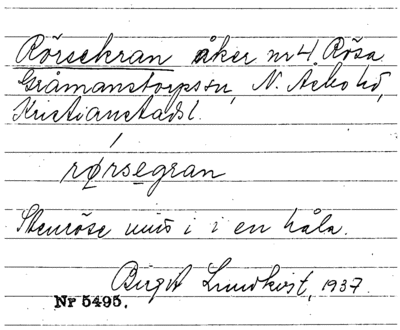 Rörsekran åker nr 4. Rösa
Gråmanstorps sn, N. Åsbo hd,
Kristianstads l.
rǿrsegran
Stenröse mitt i i en håla.
Birgit Lundkvist, 1937.
Nr 5495.